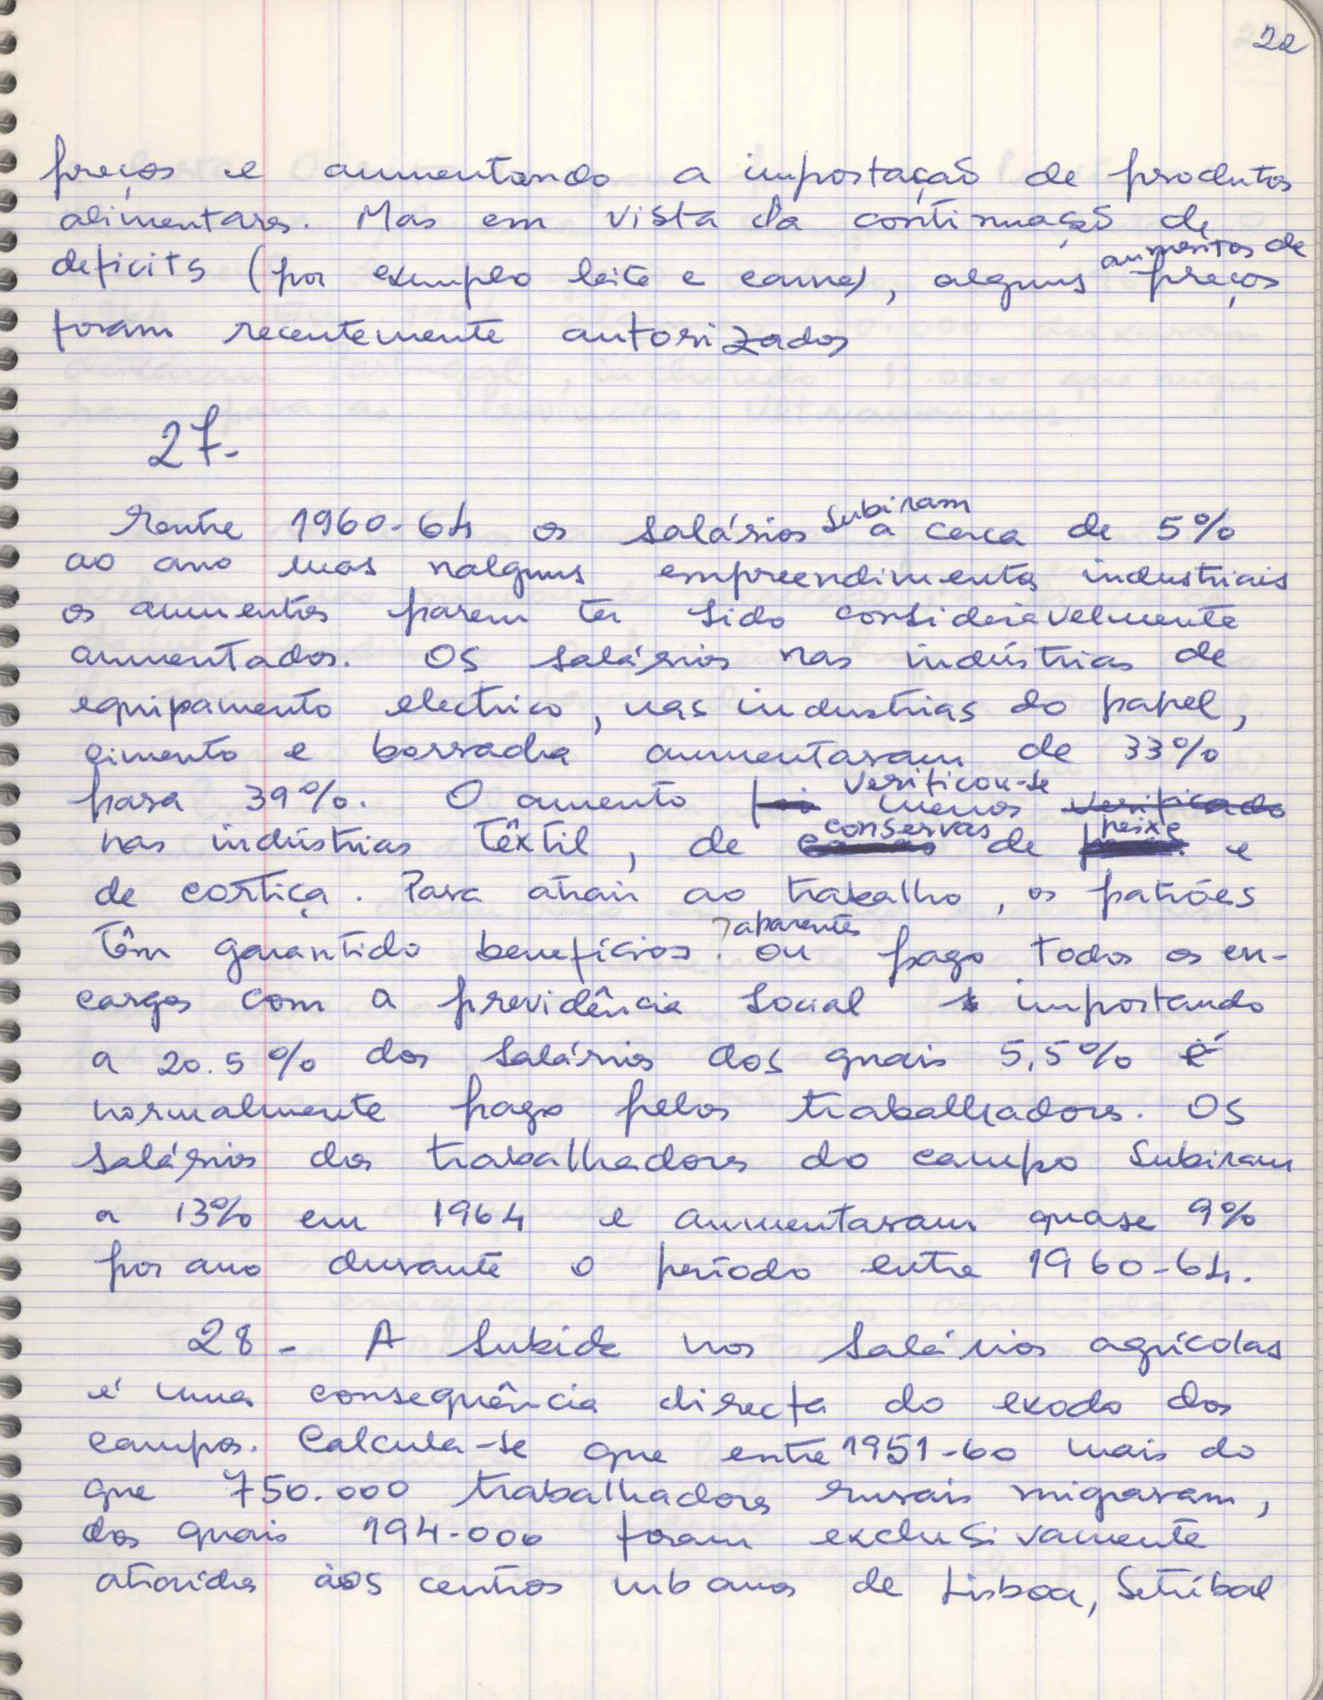 22
preços e aumentando a importação de produtos
alimentares. Mas em vista da continuação de
deficits (por exemplo leite e carne), alguns aumentos de preços
foram recentemente autorizados
27.
Rentre 1960-64 os salários subiram a cerca de 5%
ao ano mas nalguns empreendimentos industriais
os aumentos parem ter sido consideravelmente
aumentados. Os salários nas indústrias de
equipamento electrico, nas industrias do papel,
cimento e borracha aumentaram de 33%
para 39%. O amento foi verificou-se menos verificado
nas indústrias têxtil, de conservas de peixe e
de cortiça. Para atrair ao trabalho, os patrões
têm garantido benefícios ?aparentes ou pago todos os en-
cargos com a previdência social importando
a 20.5% dos salários dos quais 5,5% é
normalmente pago pelos trabalhadores. Os
salários dos trabalhadores do campo subiram
a 13% em 1964 e aumentaram quase 9%
por ano durante o período entre 1960-64.
28 - A subida nos salários agrícolas
é uma consequência directa do exodo dos
campos. Calcula-se que entre 1951-60 mais do
que 750.000 trabalhadores rurais migraram,
dos quais 194.000 foram exclusivamente
atraidos aos centros urbanos de Lisboa, Setúbal